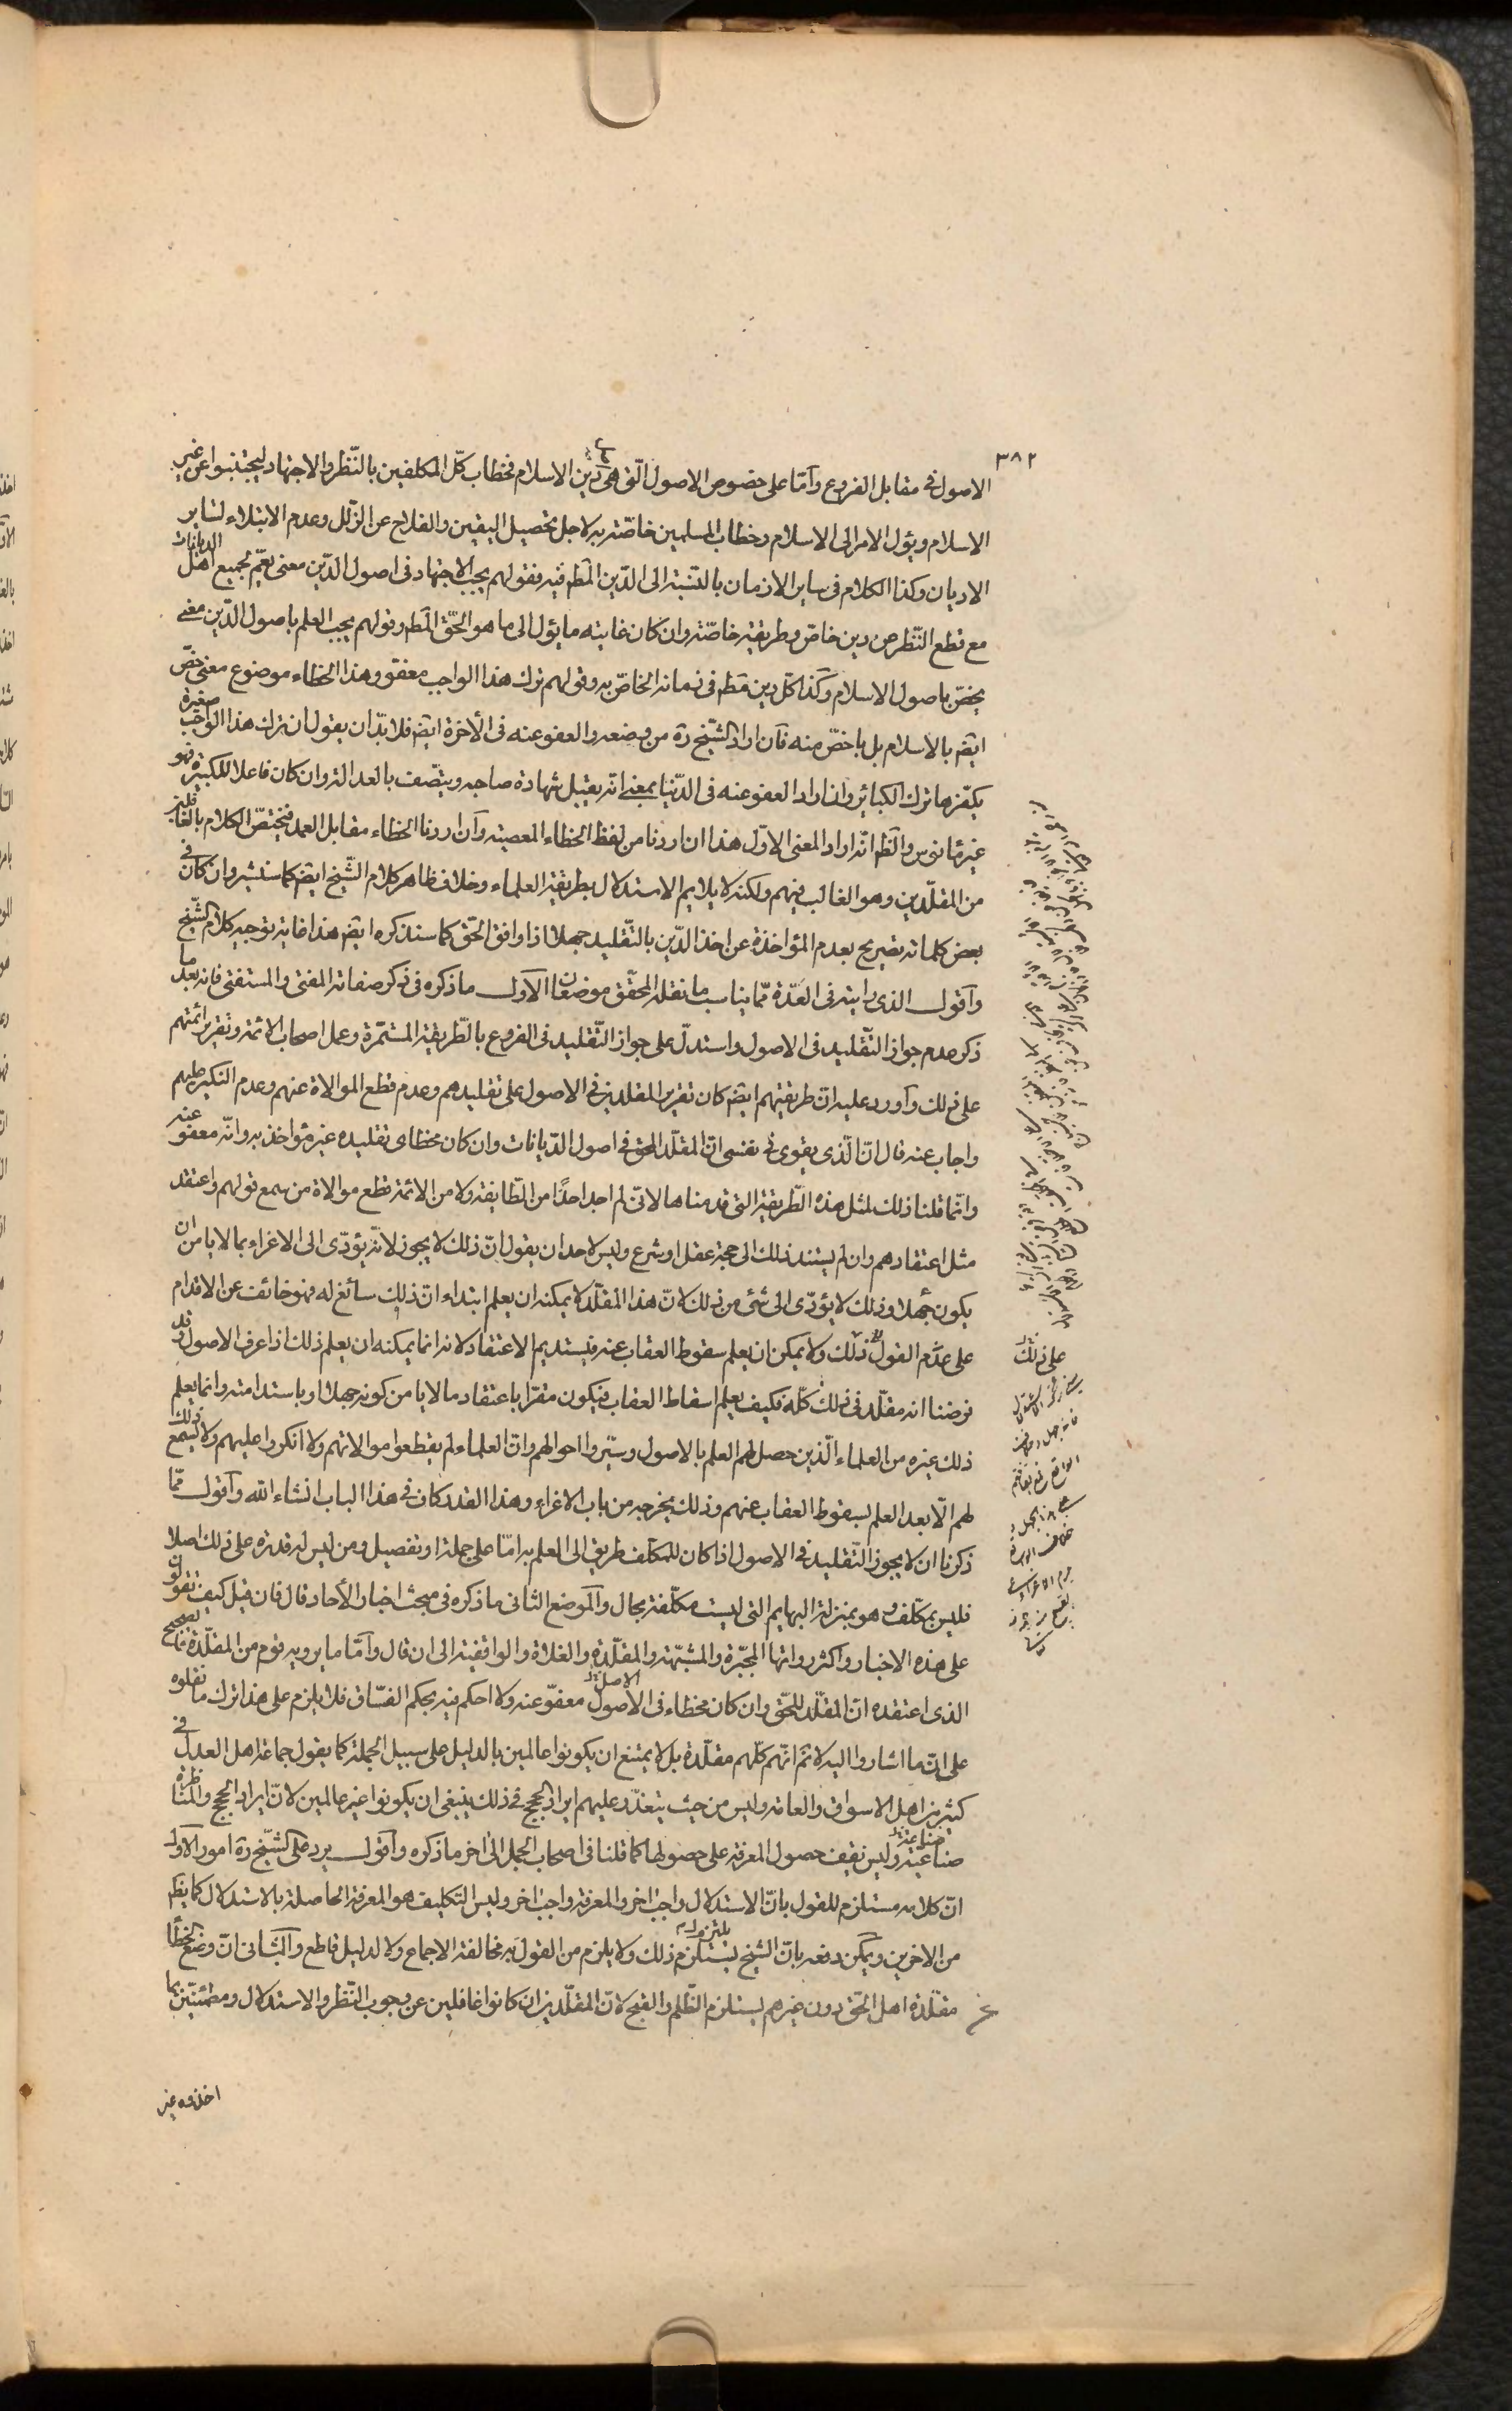 ٣٨٢
الاصول فى مقابل الفروع وامّا على خصوص الاصول الّتى هى دين الاسلام فخطاب كلّ المكلفين بالنّظر والاجتهاد ليجتنبوا عن غير
الاسلام ويؤل الامر الى الاسلام وخطاب المسلمين خاصّة به لاجل تحصيل اليقين والفلاح عن الزّلل وعدم الابتلاء لساير
الاديان وكذا الكلام فى ساير الازمان بالنّسبة الى الدّين المط فيه فقولهم يجب الاجتهاد فى اصول الدّين معنى يعمّ لجميع اهل الديانات
مع قطع النّظر عن دين خاصّ وطريقة خاصّة وان كان غايته ما يؤل الى ما هو الحقّ المط وقولهم يجب العلم باصول الدّين معنى
يخصّ باصول الاسلام وكذا كلّ دين مط فى زمانه الخاصّ به وقولهم ترك هذا الواجب معفو وهذا الخطاء موضوع معنى خصّ
ايضا بالاسلام بل باخصّ منه فان اراد الشّيخ ره من وضعه والعفو عنه فى الآخرة ايضا فلا بدّ ان يقول ان ترك هذا الواجب صغيرة
يكفّرها ترك الكبائر وان اراد العفو عنه فى الدّنيا بمعنى انّه يقبل شهادة صاحبه ويتّصف بالعدالة وان كان فاعلا للكبيرة فهو
غير مانوس والظ انّه اراد المعنى الاوّل هذا ان اردنا من لفظ الخطاء المعصية وان اردنا الخطاء مقابل العمد فيختصّ الكلام بالغافلين
من المقلّدين وهو الغالب فيهم ولكنه لا يلايم الاستدلال بطريقة العلماء وخلاف ظاهر كلام الشّيخ ايضا كما سنشير وان كان فى
بعض كلماته تصريح بعدم المؤاخذة عن اخذ الدّين بالتّقليد جهلا اذا وافق الحقّ كما سنذكره ايضا هذا غاية توجيه كلام الشّيخ
واقول الذى رايته فى العدّة ممّا يناسب ما نقله المحقّق موضعان الاول ما ذكره فى ذكر صفات المفتى والمستفتى فانه بعد ما
ذكر عدم جواز التّقليد فى الاصول واستدلّ على جواز التّقليد فى الفروع بالطّريقة المستمّرة وعمل اصحاب الائمة وتقرير ائمّتهم
على ذلك واورد عليه انّ طريقتهم ايضا كان تقرير المقلدين فى الاصول على تقليدهم وعدم قطع الموالاة عنهم وعدم النّكير عليهم
واجاب عنه قال انّ الّذى يقوى فى نفسى انّ المقلّد المحق فى اصول الدّيانات وان كان مخطأ فى تقليده غير مؤاخذ به وانّه معفو عنه
وانّما قلنا ذلك لمثل هذه الطّريقة التى قدمناها لانّى لم اجد احدًا من الطّايفة ولا من الائمّة قطع موالاة من يسمع قولهم واعتقد
مثل اعتقادهم وان لم يستند ذلك الى حجة عقل او شرع وليس لاحد ان يقول انّ ذلك لا يجوز لانّه يؤدّى الى الاغراء بما لا يامن ان
يكون جهلا وذلك لا يؤدّى الى شئ من ذلك لانّ هذا المقلّد لا يمكنه ان يعلم ابتداء انّ ذلك سائغ له فهو خائف عن الاقدام
على عدم القول ذلك ولا يمكن ان يعلم سقوط العقاب عنه فيستديم الاعتقاد لانه انما يمكنه ان يعلم ذلك اذا عرف الاصول وقد
فرضنا انه مقلّد فى ذلك كلّه فكيف يعلم اسقاط العقاب فيكون مقرّا باعتقاد ما لا يامن كونه جهلا او باستدامته وانما يعلم
ذلك غيره من العلماء الّذين حصل لهم العلم بالاصول وسبّروا احوالهم وانّ العلماء لم يقطعوا موالاتهم ولا انكروا عليهم ولا يسمع ذلك
لهم الّا بعد العلم بسقوط العقاب عنهم وذلك يخرجه من باب الاغراء وهذا القدر كان فى هذا الباب انشاء الله واقول ممّا
ذكرنا ان لا يجوز التّقليد فى الاصول اذا كان للمكلّف طريق الى العلم به امّا على جملة او تفصيل ومن ليس له قدرة على ذلك اصلا
فليس بمكلّف وهو بمنزلة البهايم التى ليست مكلّفة بحال والموضع الثانى ما ذكره فى مبحث اخبار الآحاد قال فان قيل كيف تقولون
على هذه الاخبار واكثر رواتها المجبّرة والمشبّهة والمقلّدة والغلاة والواقفية الى ان قال وامّا ما يرويه قوم من المقلّدة فالصحيح
الذى اعتقده انّ المقلّد للحّق وان كان مخطاء فى الاصول معفوّ عنه ولا احكم فيه بحكم الفسّاق فلا يلزم على هذا ترك ما نقلوه
على انّ ما اشاروا اليه لا نم انّهم كلّهم مقلّدة بل لا يمتنع ان يكونوا عالمين بالدليل على سبيل الجملة كما يقول جماعة اهل العدل فى
كثير من اهل الاسواق والعامّة وليس من حيث يتعذّر عليهم ايراد الحجج فى ذلك ينبغى ان يكونوا غير عالمين لانّ ايراد الحجج والمناظرة
صناعة وليس تقف حصول المعرفة على حصولها كما قلنا فى اصحاب الجمل الى اخر ما ذكره واقول يرد على الشّيخ ره امور الاول
انّ كلامه مستلزم للقول بانّ الاستدلال واجب اخر والمعرفة واجب اخر وليس التكليف هو المعرفة الحاصلة بالاستدلال كما يظهر
من الاخرين ويمكن دفعه بانّ الشيخ يلتزم ذلك ولا يلزم من القول به مخالفة الاجماع ولا لدليل قاطع والثانى انّ وضع الخطأ
عن مقلّدة اهل الحق دون غيرهم يستلزم الظّلم والقبح لانّ المقلّدين ان كانوا غافلين عن وجوب النّظر والاستدلال ومطمئنّين بما
اخذوه عن